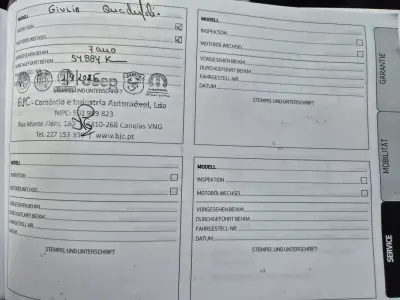 MODELL Giulia Quadrifoglio
INSPEKTION
MOTORÖLWECHSEL
VORGESEHEN BEI KM 7 ano
DURCHGEFÜHRT BEI KM 54 884 K
BJC - Comércio e Indústria Automóvel, Lda
NIPC: 502 999 823
Canelas VNG
Tel. 227 153 www.bjc.pt
MODELL
INSPEKTION
MOTORÖLWECHSEL
VORGESEHEN BEI KM
DURCHGEFÜHRT BEI KM
FAHRGESTELL-NR.
DATUM
STEMPEL UND UNTERSCHRIFT
MODELL
INSPEKTION
MOTORÖLWECHSEL
VORGESEHEN BEI KM
DURCHGEFÜHRT BEI KM
FAHRGESTELL-NR.
DATUM
STEMPEL UND UNTERSCHRIFT
MODELL
INSPEKTION
MOTORÖLWECHSEL
VORGESEHEN BEI KM
DURCHGEFÜHRT BEI KM
FAHRGESTELL-NR.
DATUM
STEMPEL UND UNTERSCHRIFT
GARANTIE
MOBILITÄT
SERVICE